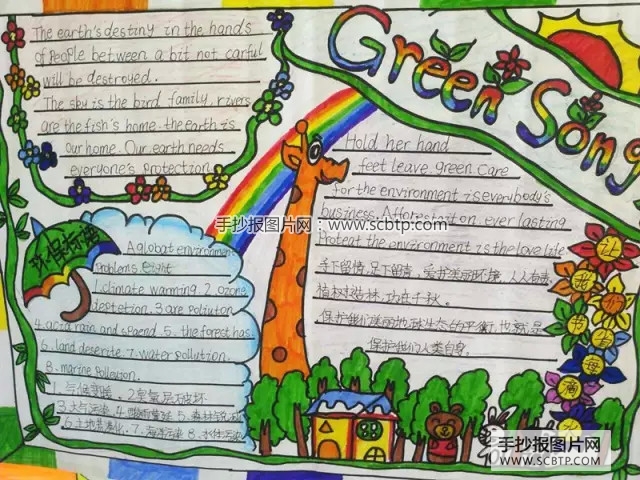 Green Song
The earth's destiny in the hands
of People between a bit not carful
will be destroyed.
The sky is the bird family, rivers
are the fish's home. the earth is
our home. Our earth needs
everyone's protection
Hold her hand
feet leave green care
for the environment is everybody's
business. Afforestation ever lasting
Protect the environment is the love life
手下留情,足下留青,爱护美丽环境,人人有责,
植树造林,功在千秋。
保护我们地球生态的平衡,也就是
保护我们人类自身。
手抄报图片网
www.scbtp.com
A global environment
problems eight
1.climate warming. 2. ozone
depletation. 3 are pollution
4. acid rain and spaend. 5. the forest has
6. land desertie. 7. water pollution.
8. marine pollution.
1.气候变暖、2.臭氧层破坏
3.大气污染、4.酸雨蔓延 5.森林锐减
6.土地荒漠化、7.海洋污染 8.水体污染
让
我
们
母
滴
手抄报图片网
WWW.SCBTP.COM